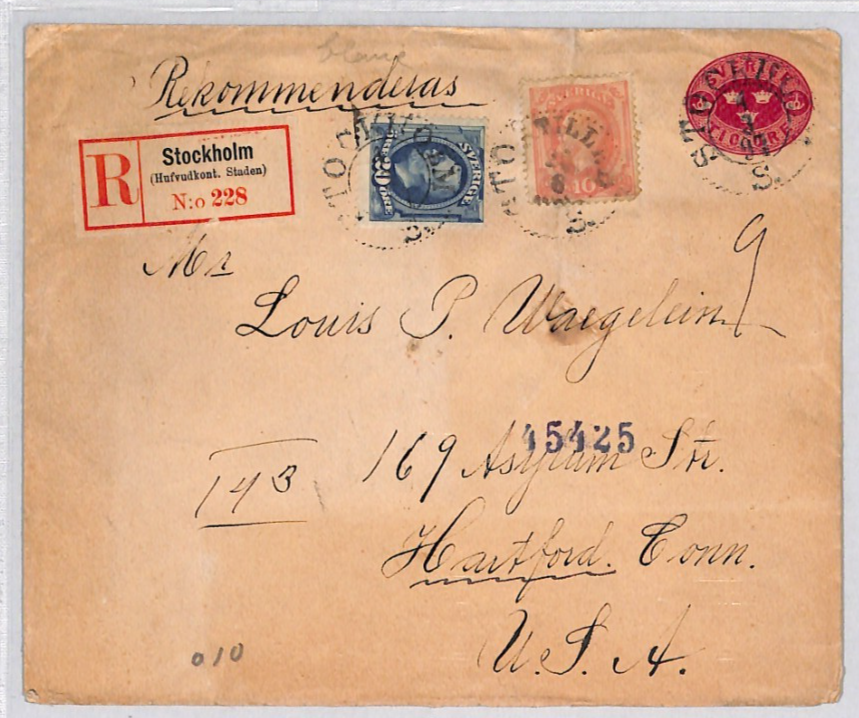 Rekommenderas
R
Stockholm
(Hufvudkont. Staden)
N:o 228
SVERIGE
20
SVERIGE
10
SVERIGE
TIO ÖRE
Mr
Louis P. Waegelein
9
45425
169 Asylum Str.
143
Hartford. Conn.
U. S. A.
010